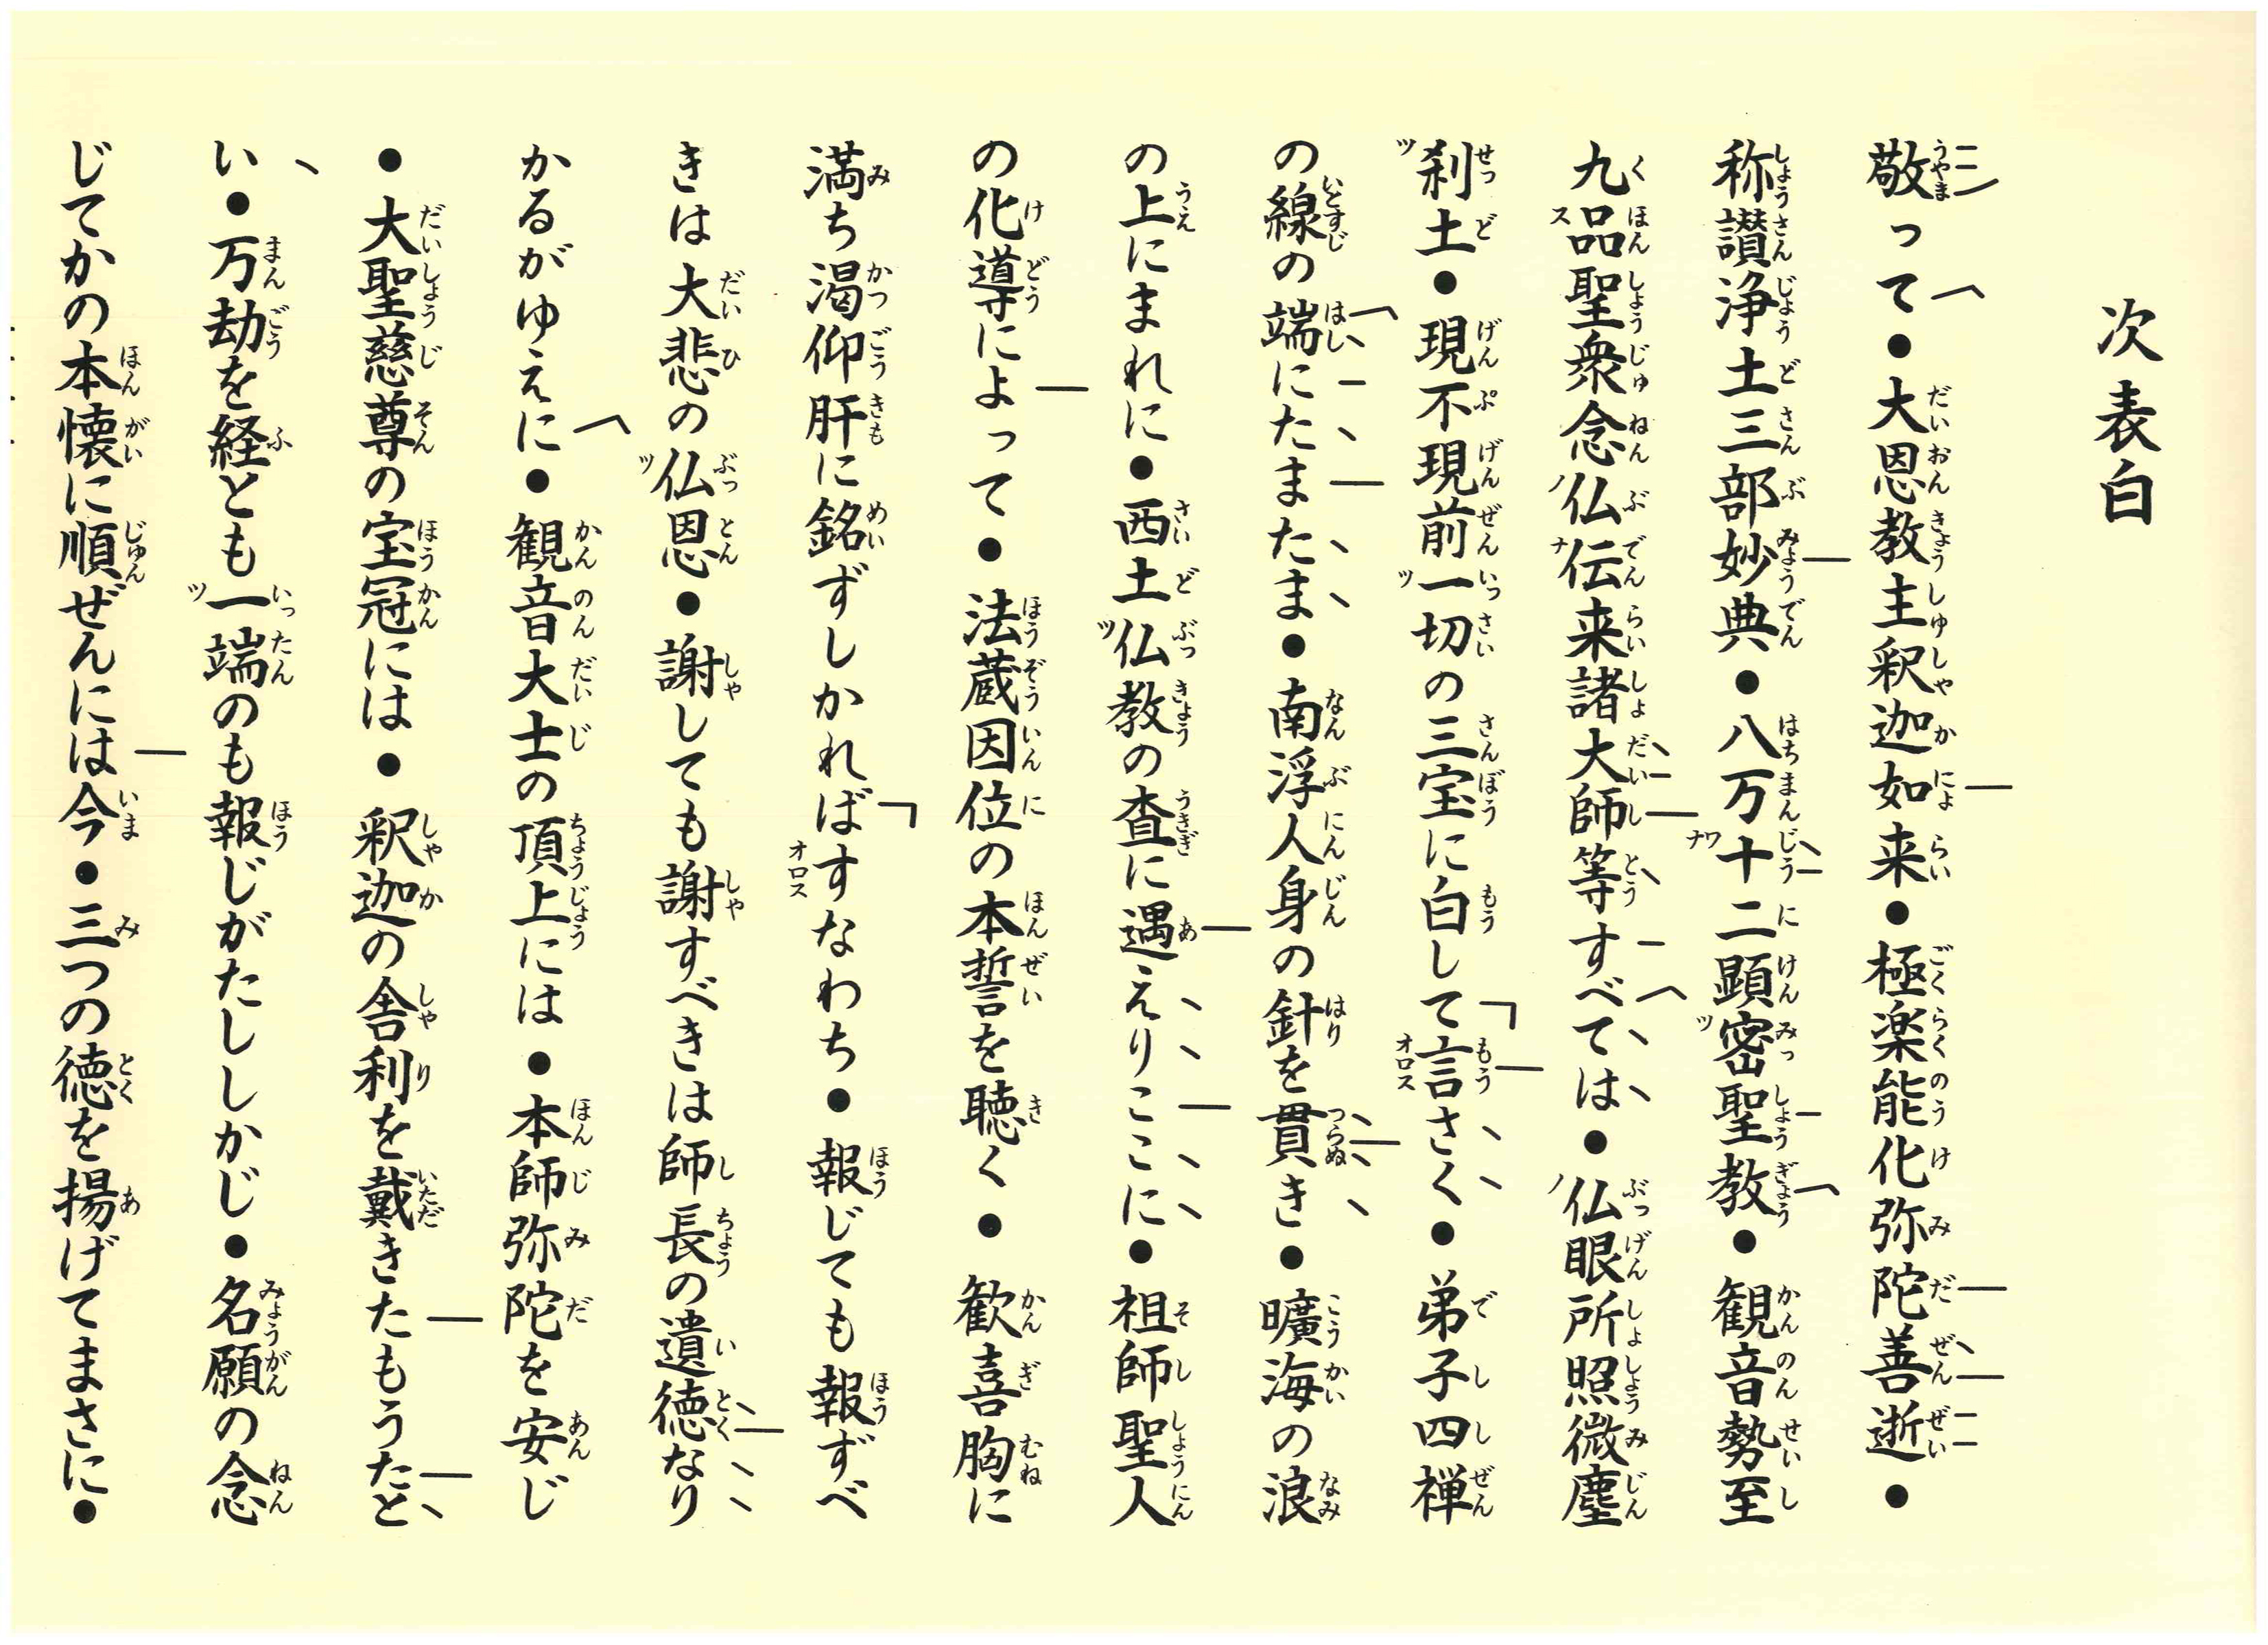 次表白
敬って●大恩教主釈迦如来●極楽能化弥陀善逝●
称讃浄土三部妙典●八万十二顕密聖教●観音勢至
九品聖衆念仏伝来諸大師等すべては●仏眼所照微塵
刹土●現不現前一切の三宝に白して言さく●弟子四禅
の線の端にたまたま●南浮人身の針を貫き●曠海の浪
の上にまれに●西土仏教の査に遇えりここに●祖師聖人
の化導によって●法蔵因位の本誓を聴く●歓喜胸に
満ち渇仰肝に銘ずしかればすなわち●報じても報ずべ
きは大悲の仏恩●謝しても謝すべきは師長の遺徳なり
かるがゆえに●観音大士の頂上には●本師弥陀を安じ
●大聖慈尊の宝冠には●釈迦の舎利を戴きたもうたと
い●万劫を経とも一端のも報じがたししかじ●名願の念
じてかの本懐に順ぜんには今●三つの徳を揚げてまさに●